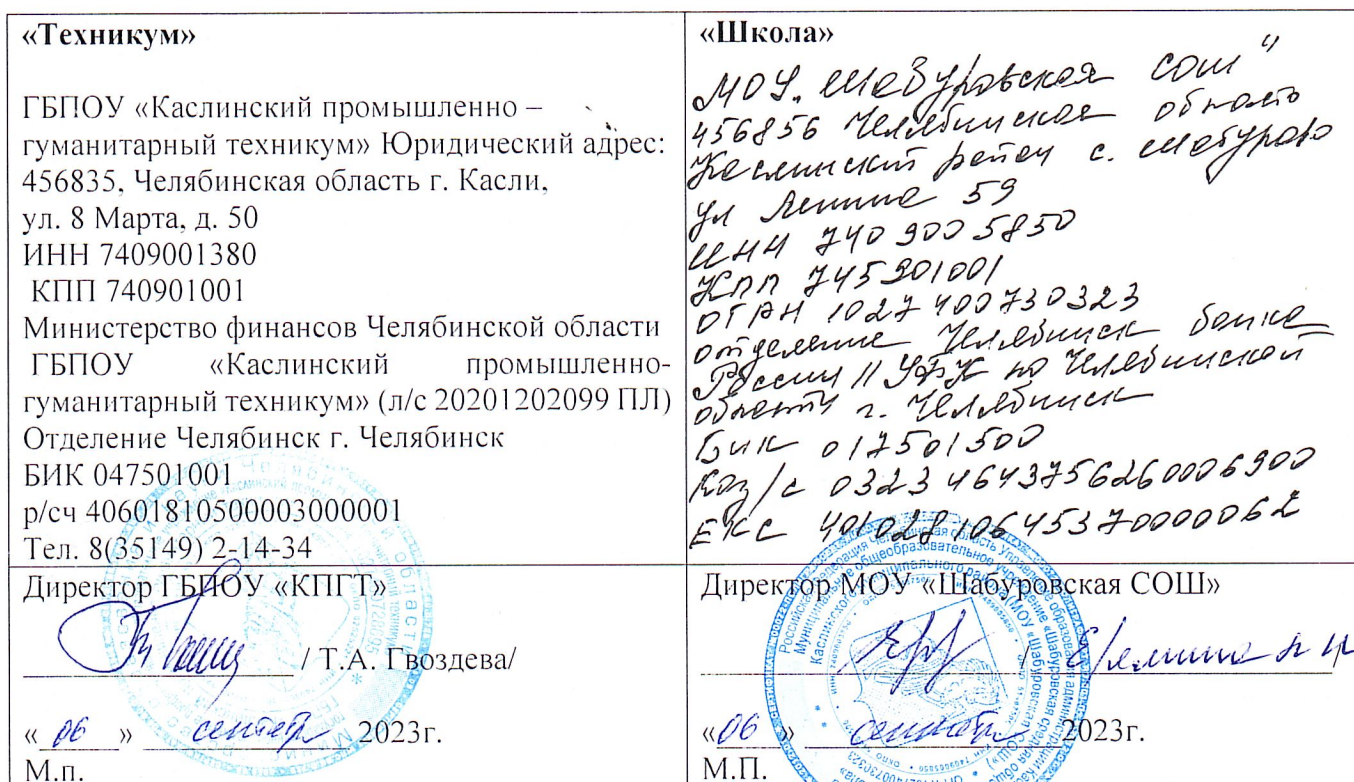 «Техникум»
ГБПОУ «Каслинский промышленно –
гуманитарный техникум» Юридический адрес:
456835, Челябинская область г. Касли,
ул. 8 Марта, д. 50
ИНН 7409001380
КПП 740901001
Министерство финансов Челябинской области
ГБПОУ «Каслинский промышленно-
гуманитарный техникум» (л/с 20201202099 ПЛ)
Отделение Челябинск г. Челябинск
БИК 047501001
р/сч 40601810500003000001
Тел. 8(35149) 2-14-34
Директор ГБПОУ «КПГТ»
/ Т.А. Гвоздева/
« 06 » сентября 2023г.
М.п.
«Школа»
МОУ "Шабуровская СОШ"
456856 Челябинская область
Каслинский район с. Шабурово
ул Ленина 59
ИНН 7409005850
КПП 745901001
ОГРН 1027400730323
отделение Челябинск банка
России // УФК по Челябинской
области г. Челябинск
Бик 017501500
Каз/с 03234643756260006900
ЕКС 40102810645370000062
Директор МОУ «Шабуровская СОШ»
«06 » сентября 2023г.
М.П.